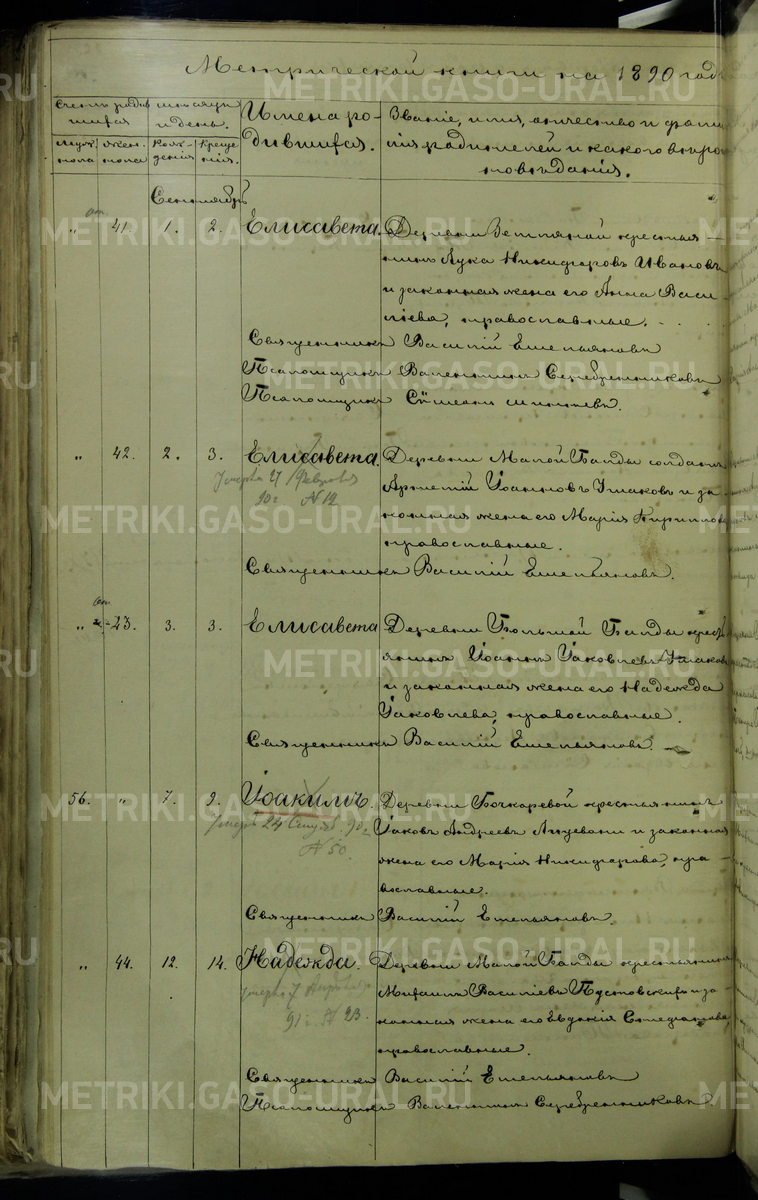 Метрической книги на 1890 годъ
Счетъ родив-
шихся
Мѣсяцъ
и день.
Имена ро-
дившихся.
Муж.
пола
Жен.
пола
Рож-
денія
Креще-
нія.
Званіе, имя, отчество и фами-
лія родителей и какого вѣро-
исповѣданія.
Сентябрь
" 41. 1. 2. Елисавета. Деревни крестья-
нинъ Лука Никифоровъ Ивановъ
и законная жена его Анна Васи-
ліева, православные.
Священникъ Василій Емельяновъ
Псаломщикъ Валентинъ Серебренниковъ
Псаломщикъ Сѵмеонъ
" 42. 2. 3. Елисавета. Деревни Малой Солдатъ
Артемій Іоанновъ Ушаковъ и за-
конная жена его Марія Кириллова
православные.
Умерла 27 Февраля
90 г № 12
Священникъ Василій Емельяновъ.
" 23. 3. 3. Елисавета Деревни Большой крест-
янинъ Іоаннъ Іаковлевъ Ушаковъ
и законная жена его Надежда
Іаковлева, православные.
Священникъ Василій Емельяновъ.
56. " 7. 9. Іоакимъ. Деревни Бочкаревой крестьянинъ
Іаковъ Андреевъ и законная
жена его Марія Никифорова, пра-
вославные.
Умеръ 24 Сентяб. 90 г
№ 50
Священникъ Василій Емельяновъ.
" 44. 12. 14. Надежда. Деревни Малой крестьянинъ
Михаилъ Василіевъ и за-
конная жена его Евдокія
православные.
Умерла 7
91 г. № 23.
Священникъ Василій Емельяновъ
Псаломщикъ Валентинъ Серебренниковъ
METRIKI.GASO-URAL.RU